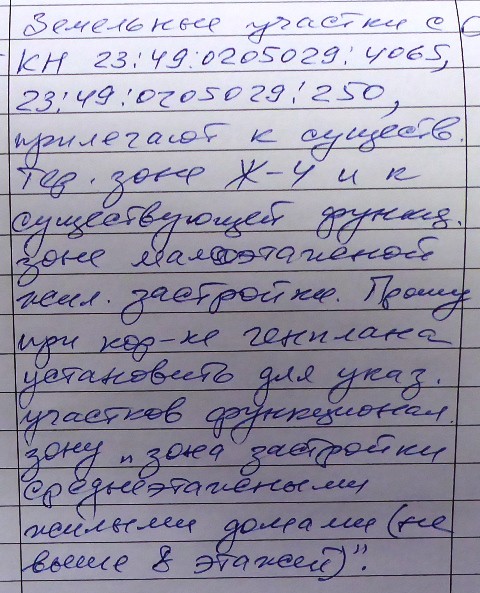 Земельные участки с
КН 23:49:0205029:4065,
23:49:0205029:250,
прилегают к существ.
тер. зоне Ж-4 и к
существующей функц.
зоне малоэтажной
жил. застройки. Прошу
при кор-ке генплана
установить для указ.
участков функционал.
зону "зона застройки
среднеэтажными
жилыми домами (не
выше 8 этажей)".